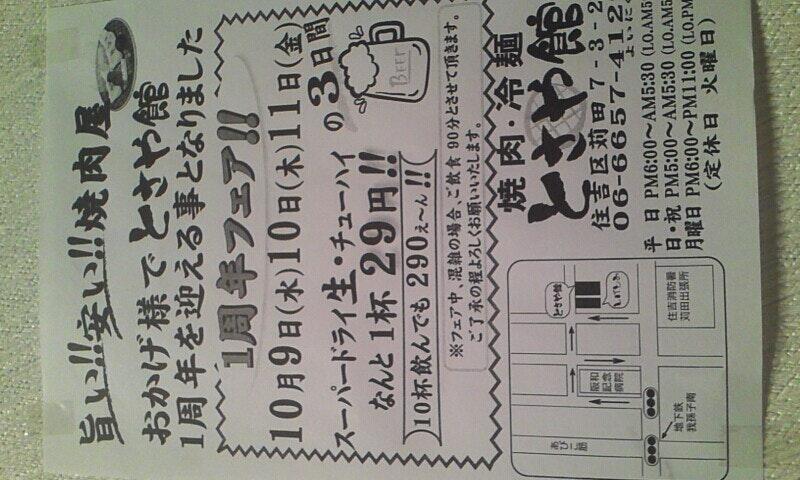 旨い!!安い!!焼肉屋
おかげ様でとさや館
1周年を迎える事となりました
1周年フェア!!
10月9日(水)10日(木)11日(金)
の3日間
スーパードライ生・チューハイ
なんと1杯29円!!
10杯飲んでも290え〜ん!!
BEER
※フェア中、混雑の場合、ご飲食90分とさせて頂きます。
ご了承の程よろしくお願いいたします。
焼肉・冷麺
とさや館
住吉区苅田7-3-2
06-6657-412
よいにく
平日 PM6:00〜AM5:30 (LO.AM5
日・祝 PM5:00〜AM5:30 (LO.AM5
月曜日 PM6:00〜PM11:00 (LO.PM
(定休日 火曜日)
とさや館
住吉消防署
苅田出張所
阪和
記念
病院
地下鉄
我孫子南
あびこ筋